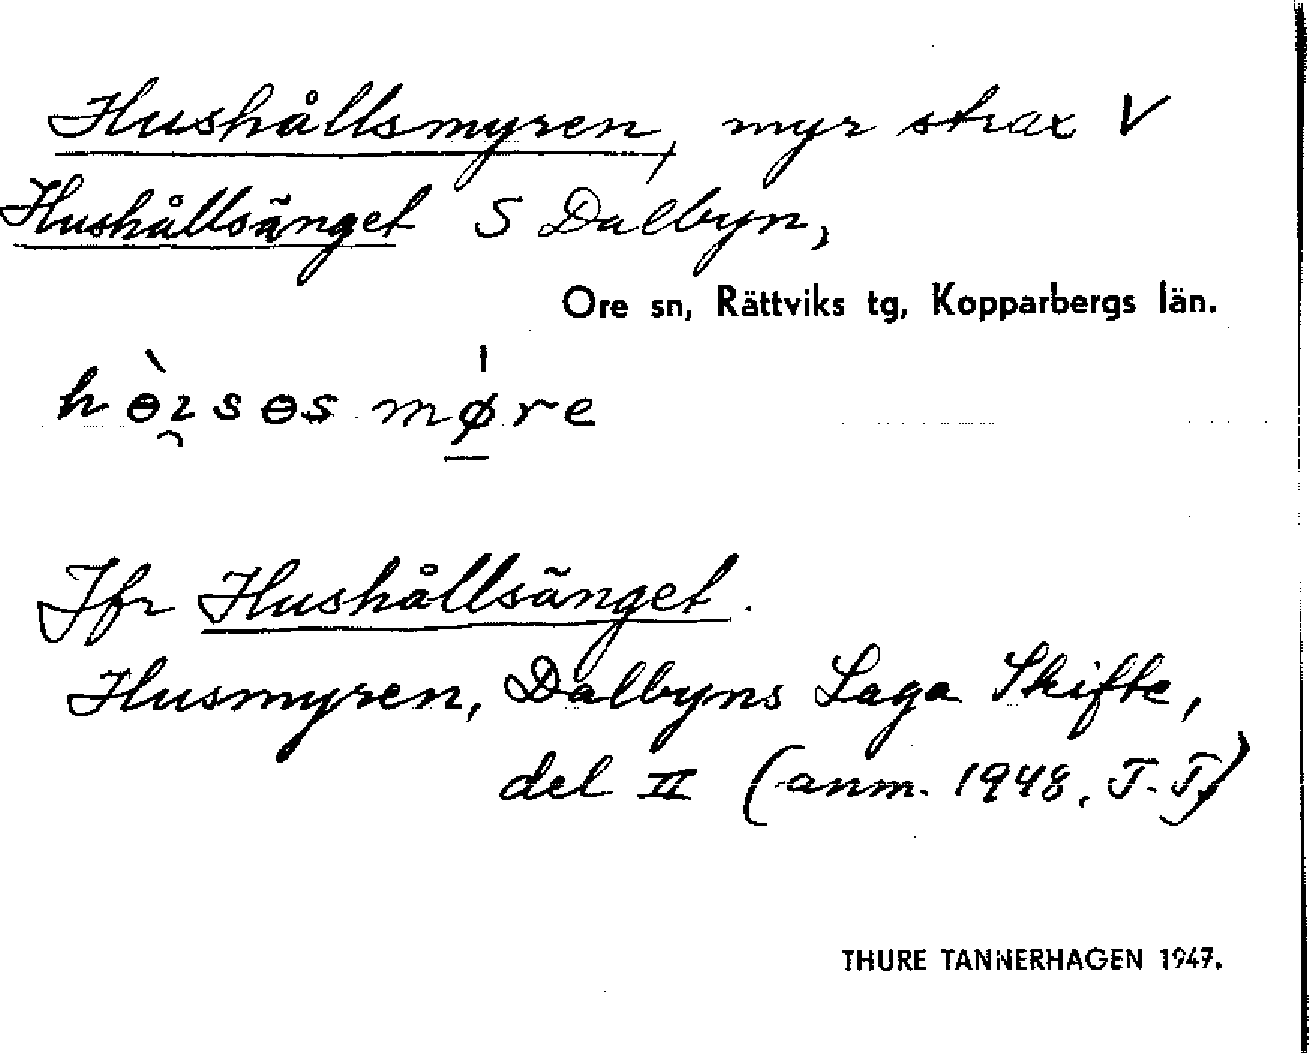 Hushållsmyren, myr strax V
Hushållsänget S Dalbyn,
Ore sn, Rättviks tg, Kopparbergs län.
Jfr Hushållsänget.
Husmyren, Dalbyns Laga Skifte,
del II (anm. 1948. T. T.)
THURE TANNERHAGEN 1947.